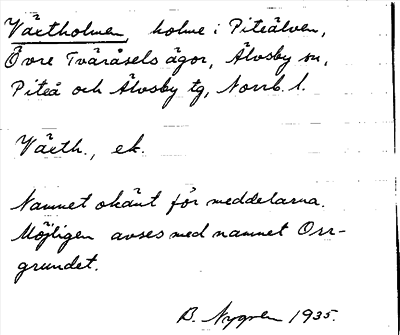 Växtholmen, holme i Piteälven,
Övre Tväråsels ägor, Älvsby sn,
Piteå och Älvsby tg, Norrb. l.
Växth., ek.
Namnet okänt för meddelarna.
Möjligen avses med namnet Orr-
grundet.
B. Nygren 1935.